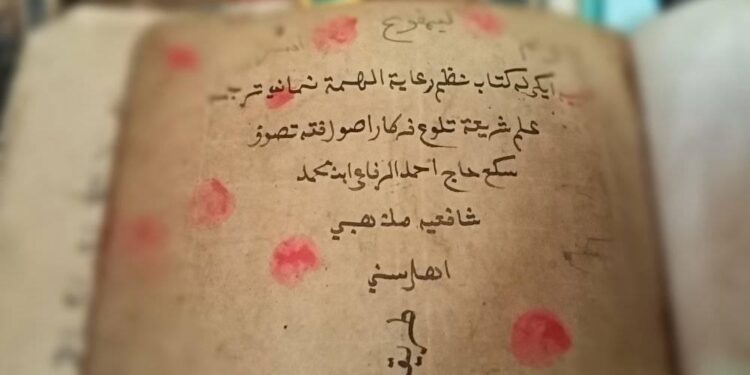 ايكوله كتاب نظم رعاية الهمة نمانيه ترجمه
علم شريعة تلوع فركارا اصول فقه تصوف
سكع حاج احمد الرفاعي ابن محمد
شافعيه مذهبي
اهل سني